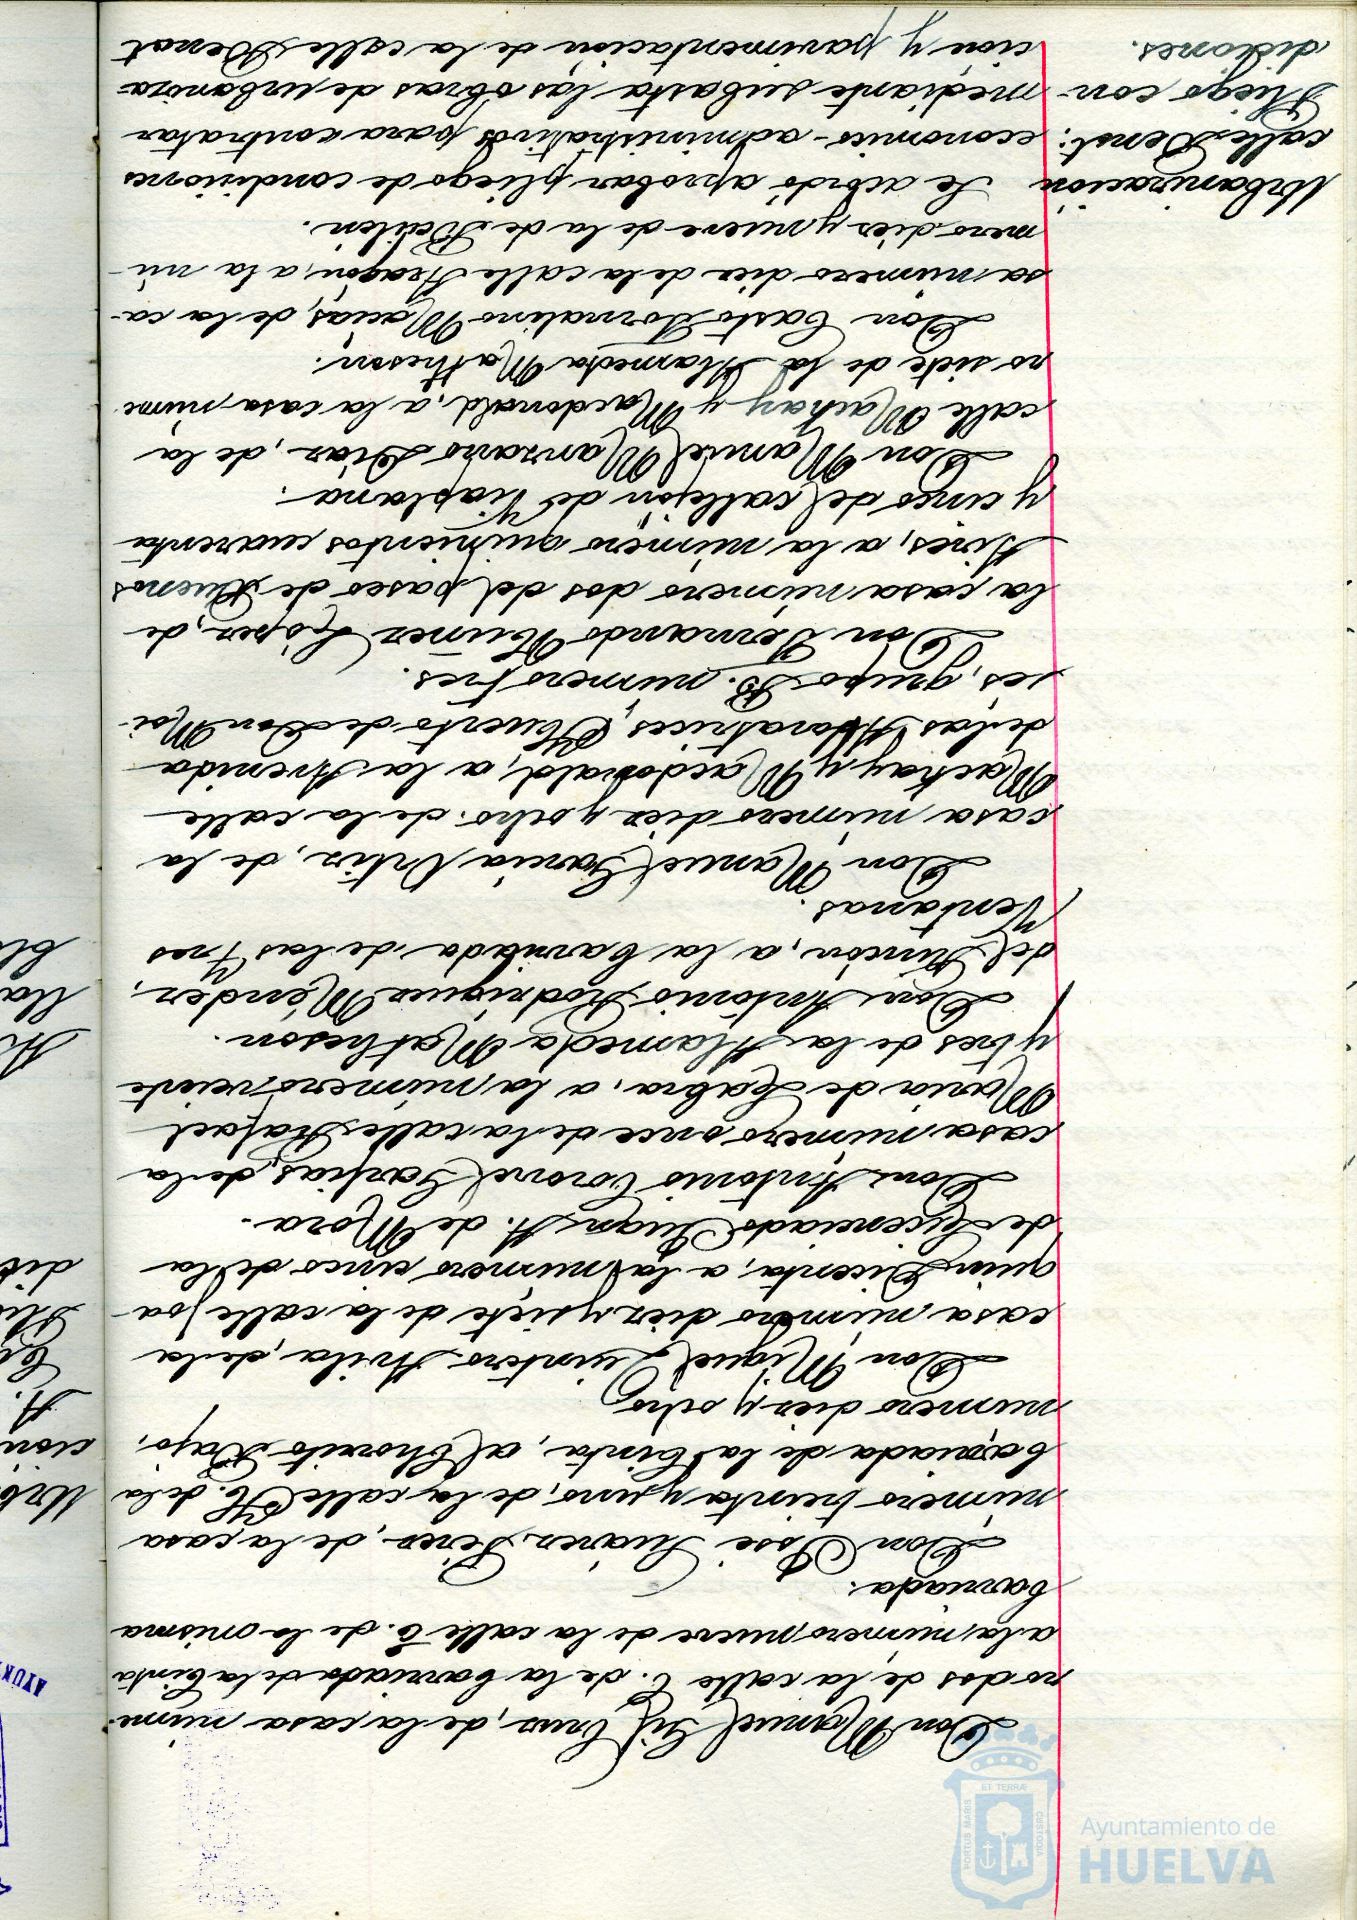 Don Manuel Gil Cruz, de la casa núme-
ro dos de la calle C. de la barriada de la Cinta
a la número nueve de la calle C. de la misma
barriada.
Don José Suárez Pérez, de la casa
número treinta y uno, de la calle H. de la
barriada de la Cinta, al Chorrito Bajo,
número diez y ocho
Don Miguel Quintero Avila, de la
casa número diez y siete de la calle Joa-
quin Dicenta, a la número cinco de la
de Licenciado Juan A. de Mora.
Don Antonio Coronel Garfias, de la
casa número once de la calle Rafael
María de Labra, a la número veinte
y tres de la Alameda Matheson.
Don Antonio Rodríguez Méndez,
del Rincón, a la barriada de las Tres
Ventanas.
Don Manuel García Ortiz, de la
casa número diez y ocho de la calle
Mackay y Macdonald, a la Avenida
de las Adoratrices, Huerto de Don Moi-
ses, grupo B. número tres.
Don Fernando Núñez López, de
la casa número dos del paseo de Buenos
Aires, a la número quinientos cuarenta
y cinco del callejón de Viaplana.
Don Manuel Manzano Díaz, de la
calle Mackay y Macdonald, a la casa núme-
ro siete de la Alameda Matheson.
Don Casto Tornalino Macías, de la ca-
sa número diez de la calle Aragón, a la nú-
mero diez y nueve de la de Bailén.
Urbanización
calle Denot:
Pliego con-
diciones.
Se acordó aprobar pliego de condiciones
económico-administrativas para contratar
mediante subasta las obras de urbaniza-
ción y pavimentación de la calle Denot
Ayuntamiento de
HUELVA
PORTUS MARIS
ET TERRAE
CUSTODIA